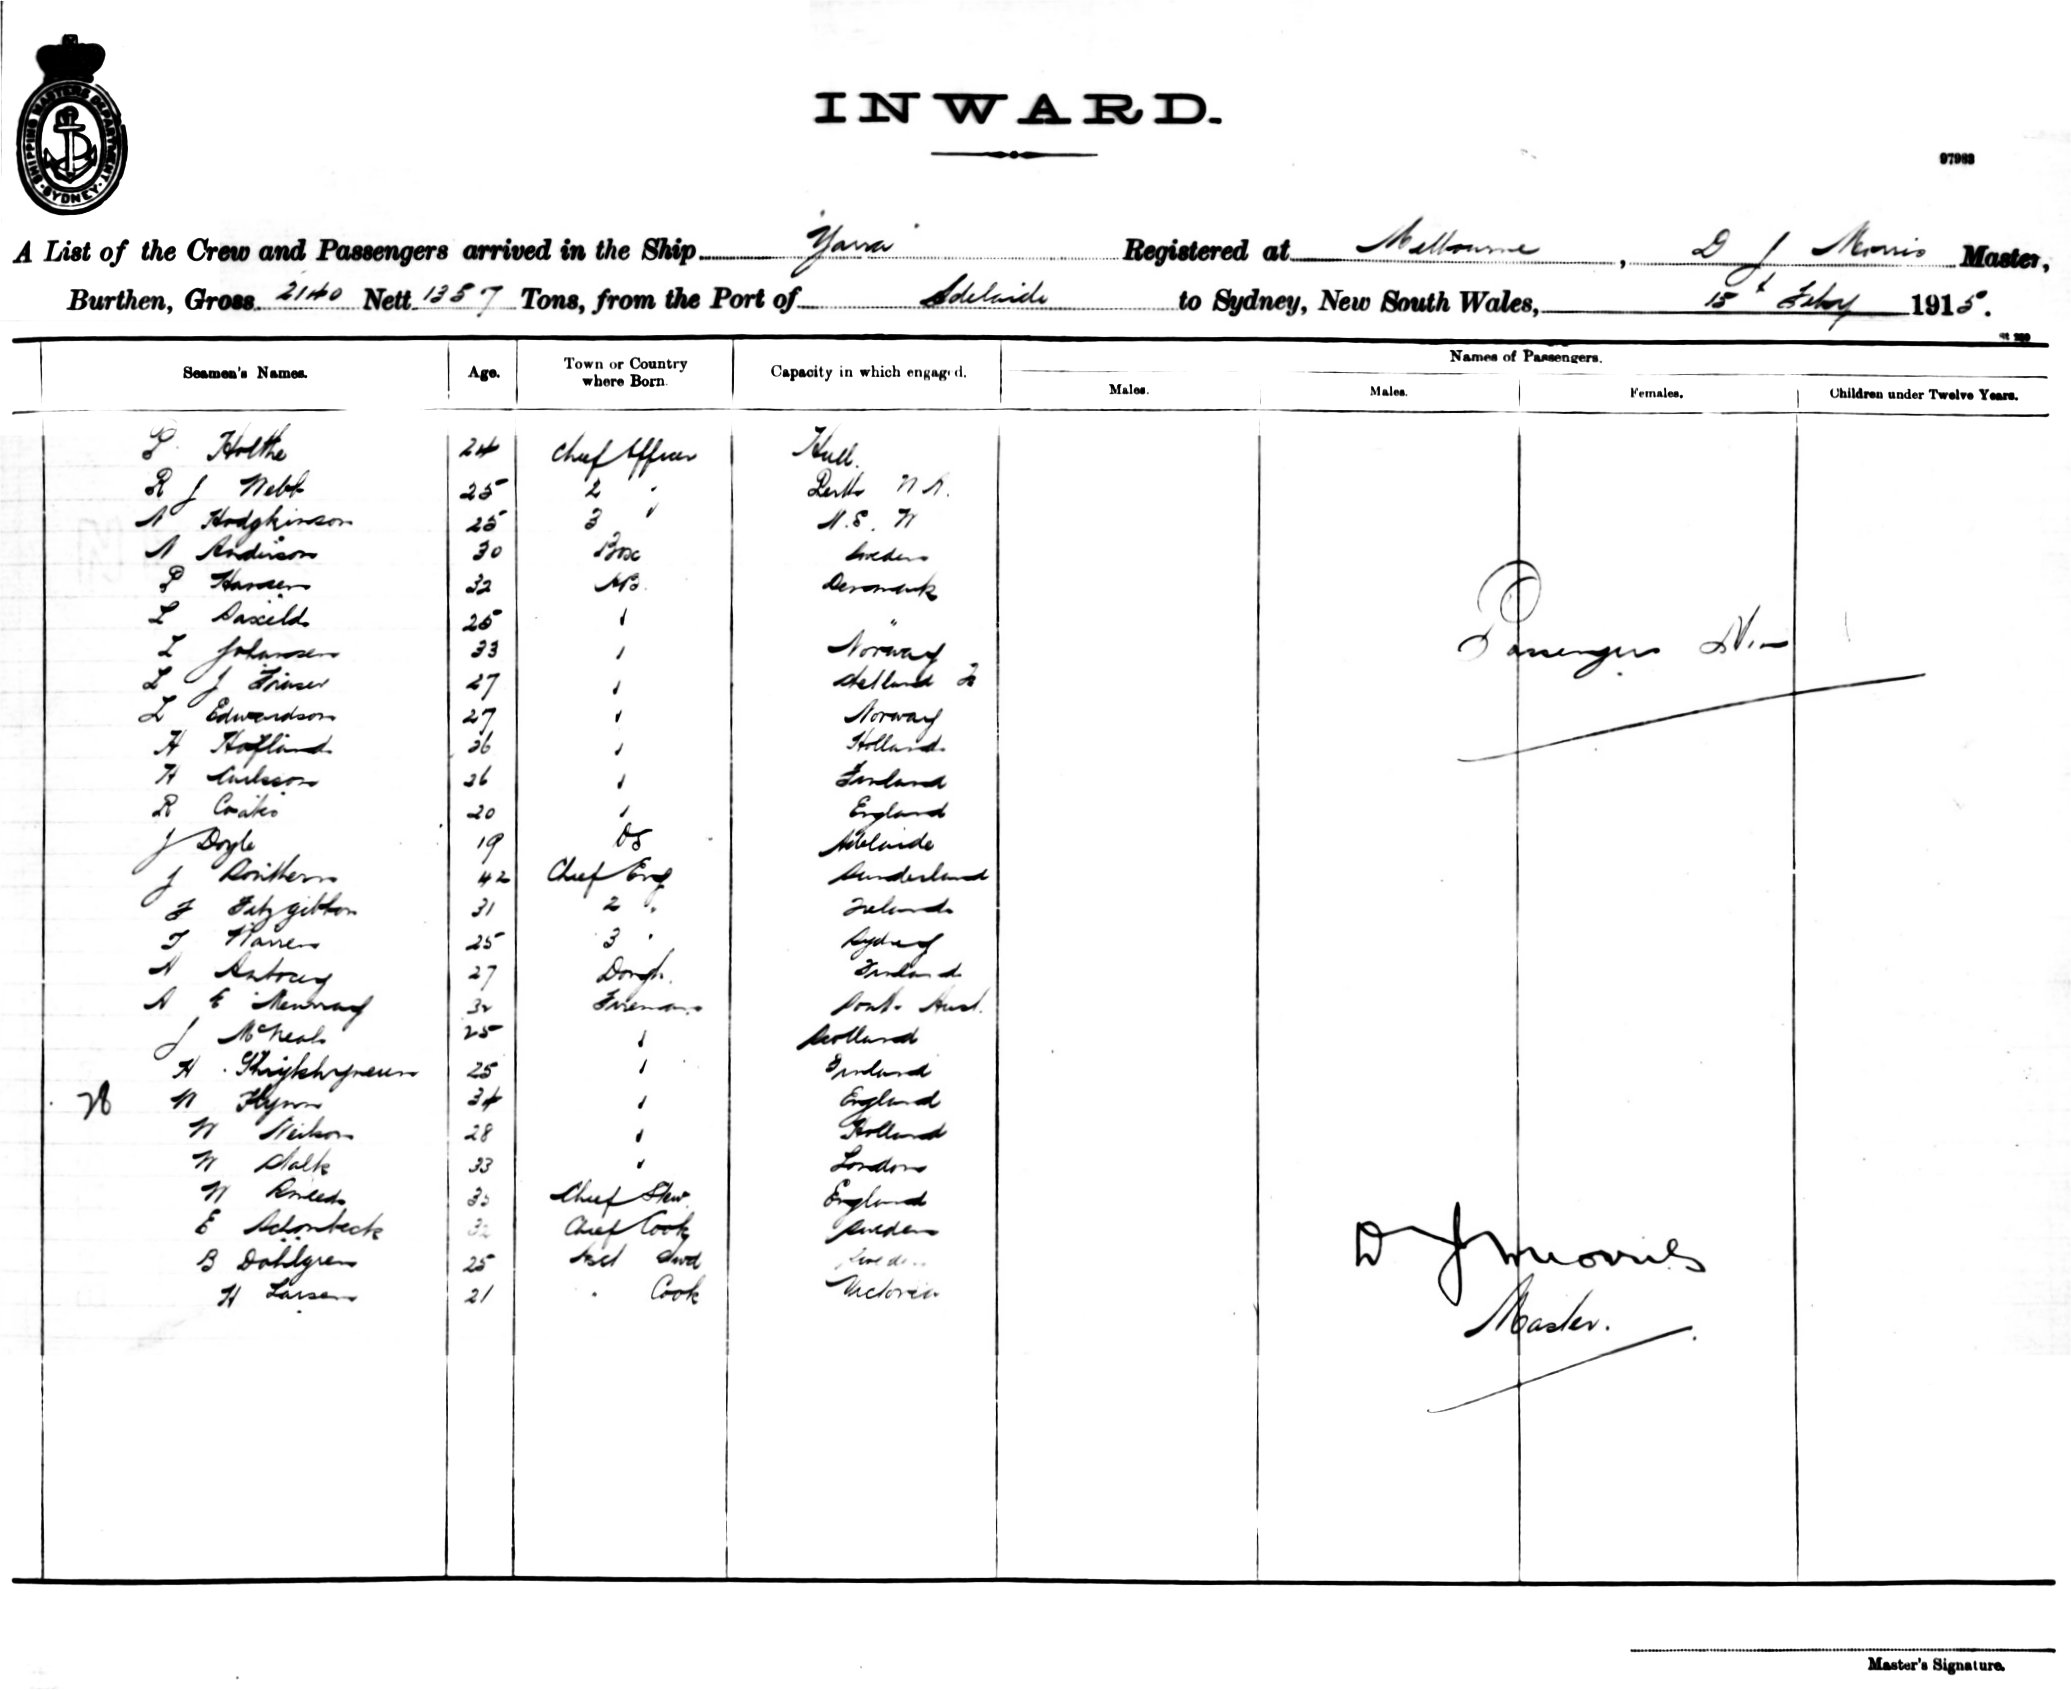 SHIPPING MASTERS DEPARTMENT SYDNEY
INWARD.
97983
A List of the Crew and Passengers arrived in the Ship "Yarra" Registered at Melbourne, D J Morris Master,
Burthen, Gross 2140 Nett 1357 Tons, from the Port of Adelaide to Sydney, New South Wales, 15th Feby 1915.
Names of Passengers.
Seamen's Names. Age. Town or Country where Born. Capacity in which engaged. Males. Males. Females. Children under Twelve Years.
Holthe 24 Chief Officer Hull.
R J Webb 25 2 " Perth W A.
A Hodgkinson 25 3 " N.S.W
A Anderson 30 Bosn Sweden
P Hansen 32 AB. Denmark
L 25 " "
L Johansen 33 " Norway
L J Fraser 27 " Shetland Is
L Edwardson 27 " Norway
H Hofland 26 " Holland
H Carlsson 26 " Finland
R Coates 20 " England
J Doyle 19 OS Adelaide
J 42 Chief Eng Sunderland
F Fitzgibbon 31 2 " Ireland
T Warren 25 3 " Sydney
A 27 Donk. Finland
A E Murray 32 Fireman South Aust.
J McNeal 25 " Scotland
H 25 " Finland
28 W Flynn 34 " England
W Neilson 28 " Holland
W Stalk 33 " London
W Sneed 35 Chief Stew. England
E Schonbeck 32 Chief Cook Sweden
B Dahlgren 25 Asst Swd Sweden
H Larsen 21 " Cook Victoria
Passengers Nil
D J Morris
Master.
Master's Signature.